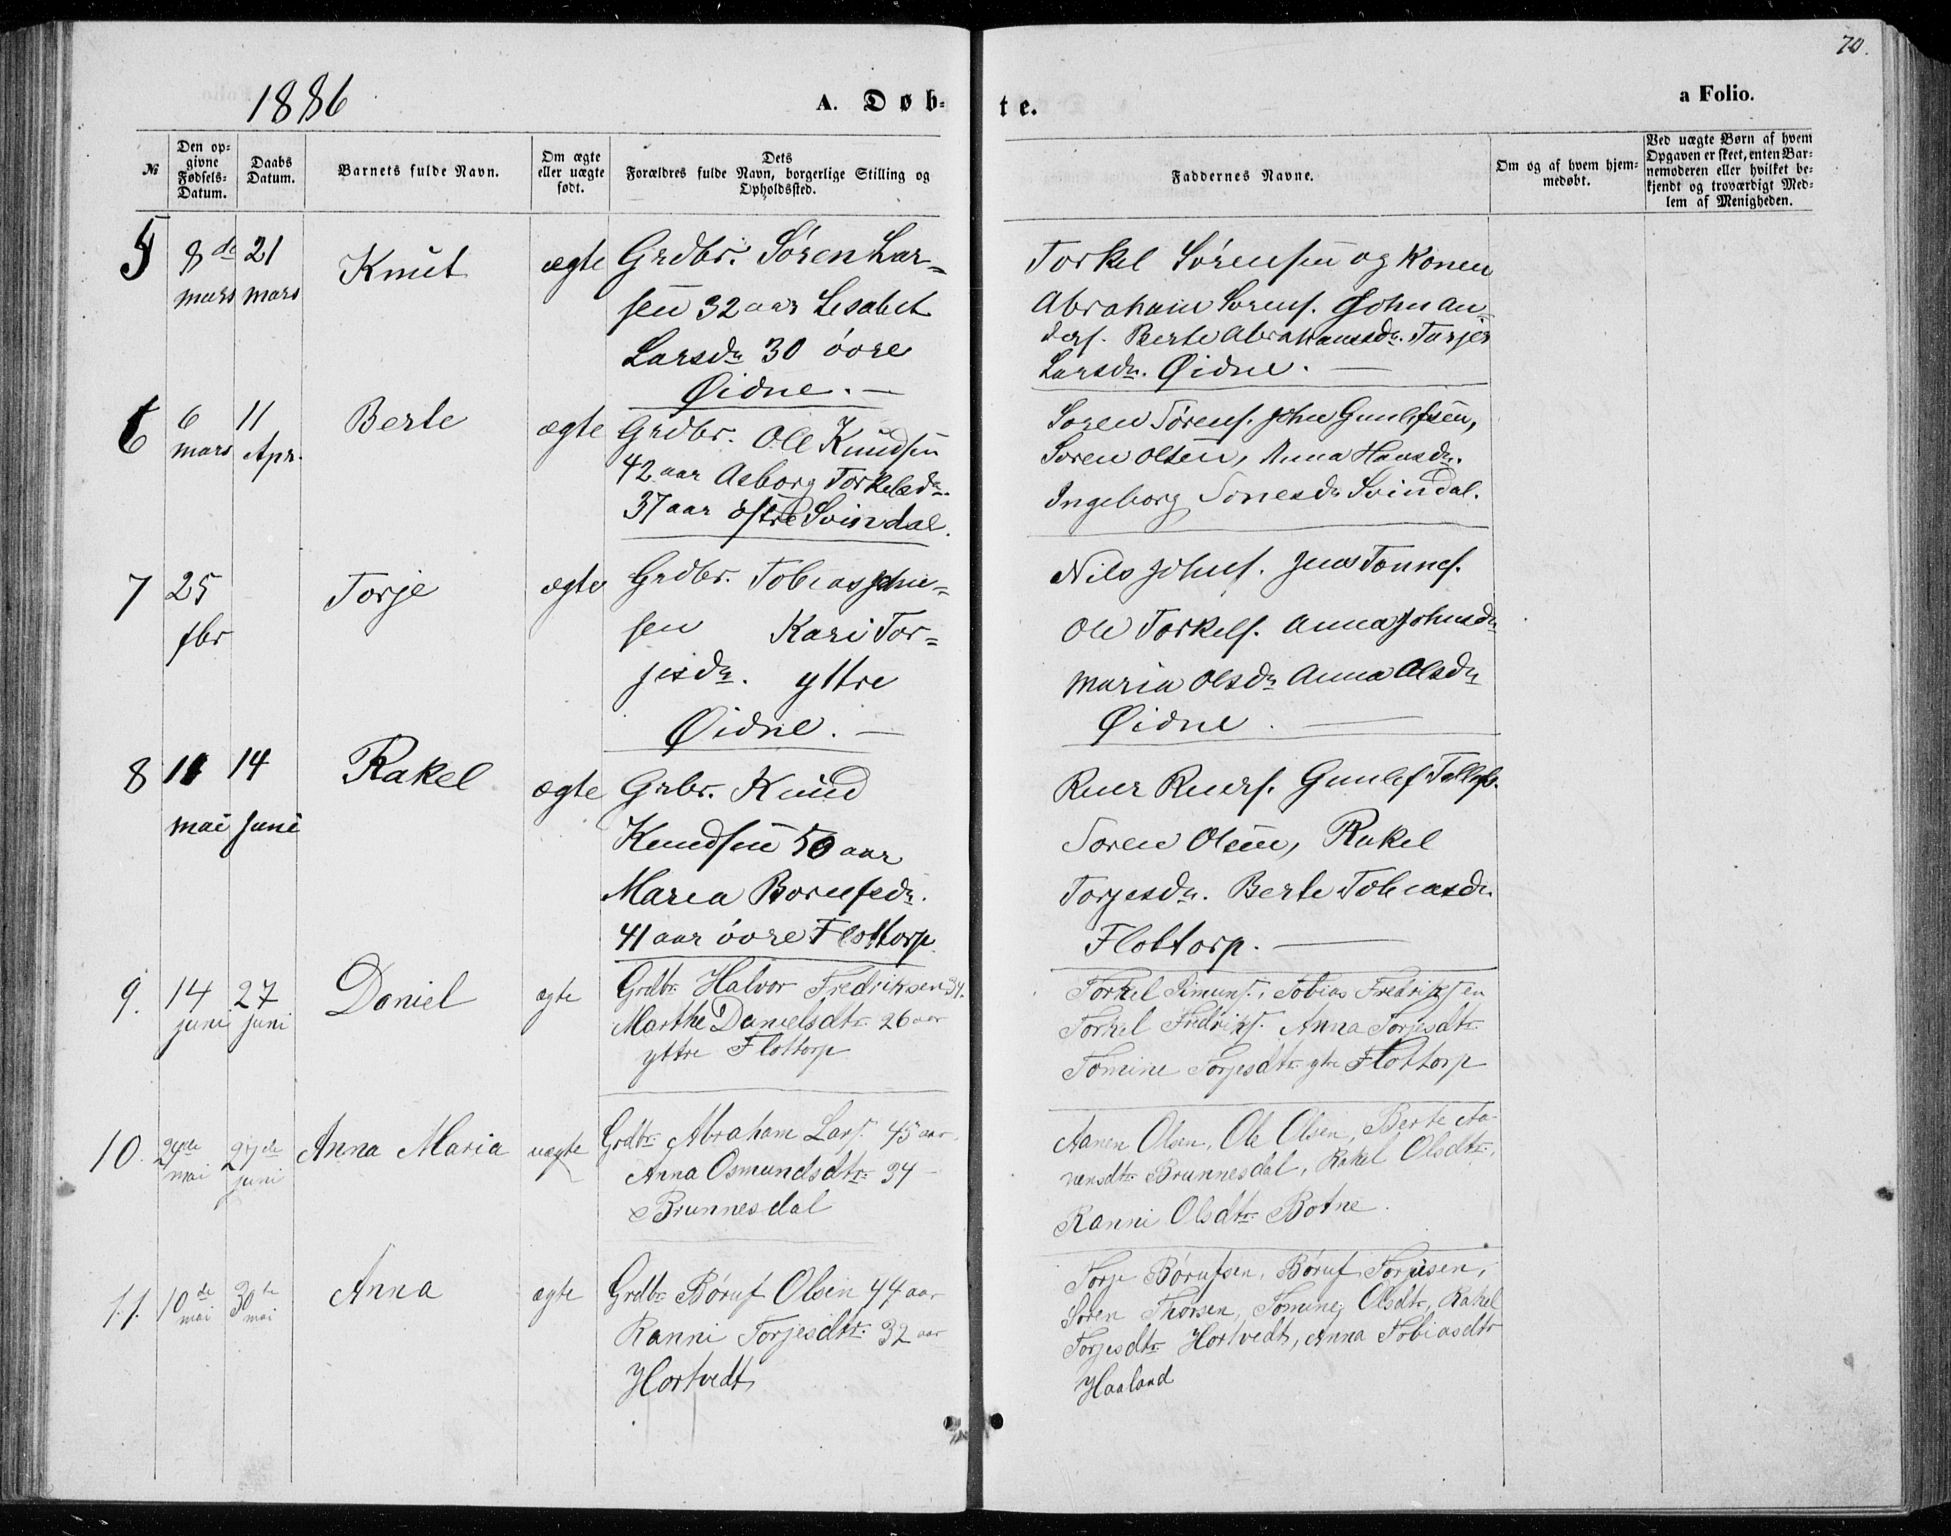 70.
1886
A. Døb-
te.
a Folio.
№
Den op-
givne
Fødsels-
Datum.
Daabs
Datum.
Barnets fulde Navn.
Om ægte
eller uægte
født.
Dets
Forældres fulde Navn, borgerlige Stilling og
Opholdssted.
Faddernes Navne.
Om og af hvem hjem-
medøbt.
Ved uægte Børn af hvem
Opgaven er skeet, enten Bar-
nemoderen eller hvilket be-
kjendt og troværdigt Med-
lem af Menigheden.
5
8de
mars
21
mars
Knut
ægte
Grdbr. Søren Lar-
sen 32 aar Lisabet
Larsdr 30 övre
Øidne. —
Torkel Sørensen og Konen
Abraham Sørens. John An-
ders. Berte Abrahamsdr. Torjer
Larsdr. Øidne. —
6
6
mars
11
Apr.
Berte
ægte
Grdbr. Ole Knudsen
42 aar Asborg Torkelsdr.
37 aar östre Svindal.
Soren Sørens. John Gunlefsen,
Soren Olsen, Anna Hansdr.
Ingeborg Tonesdr Svindal.
7
25
fbr
Torje
ægte
Grdbr. Tobias John-
sen Kari Tor-
jesdr. yttre
Øidne. —
Nils Johns. Jens Tonnes.
Ole Torkels. Anna Johnsdr
Maria Olsdr Anna Olsdr
Øidne. —
8
11
mai
14
juni
Rakel
ægte
Grbr. Knud
Knudsen 50 aar
Maria Borufsdr.
41 aar övre Flottorp.
Ruer Ruers. Gunlef Tellefs.
Soren Olsen, Rakel
Torjesdr. Berte Tobiasdr.
Flottorp. —
9.
14
juni
27
juni
Daniel
ægte
Grdbr. Halvor Fredriksen 34.
Marthe Danielsdtr. 26 aar
yttre Flottorp
Torkel Simuns., Tobias Fredriksen
Torkel Fredriks. Anna Torjesdtr.
Tomine Torjesdtr. ytre Flottorp
10.
24de
mai
27de
juni
Anna Maria
uægte
Grdbr. Abraham Lars. 45 aar
Anna Osmundsdtr. 34 —
Brunnesdal
Aanen Olsen, Ole Olsen, Berte Aa-
nensdtr. Brunnesdal, Rakel Olsdtr.,
Ranni Olsdtr. Botne.
11.
10de
mai
30te
mai
Anna
ægte
Grdbr. Børuf Olsen 44 aar
Ranni Torjesdtr. 32 aar
Hortvedt
Torje Børufsen, Børuf Torjesen,
Søren Thorsen, Tomine Olsdtr, Rakel
Torjesdtr. Hortvedt, Anna Tobiasdtr
Haaland